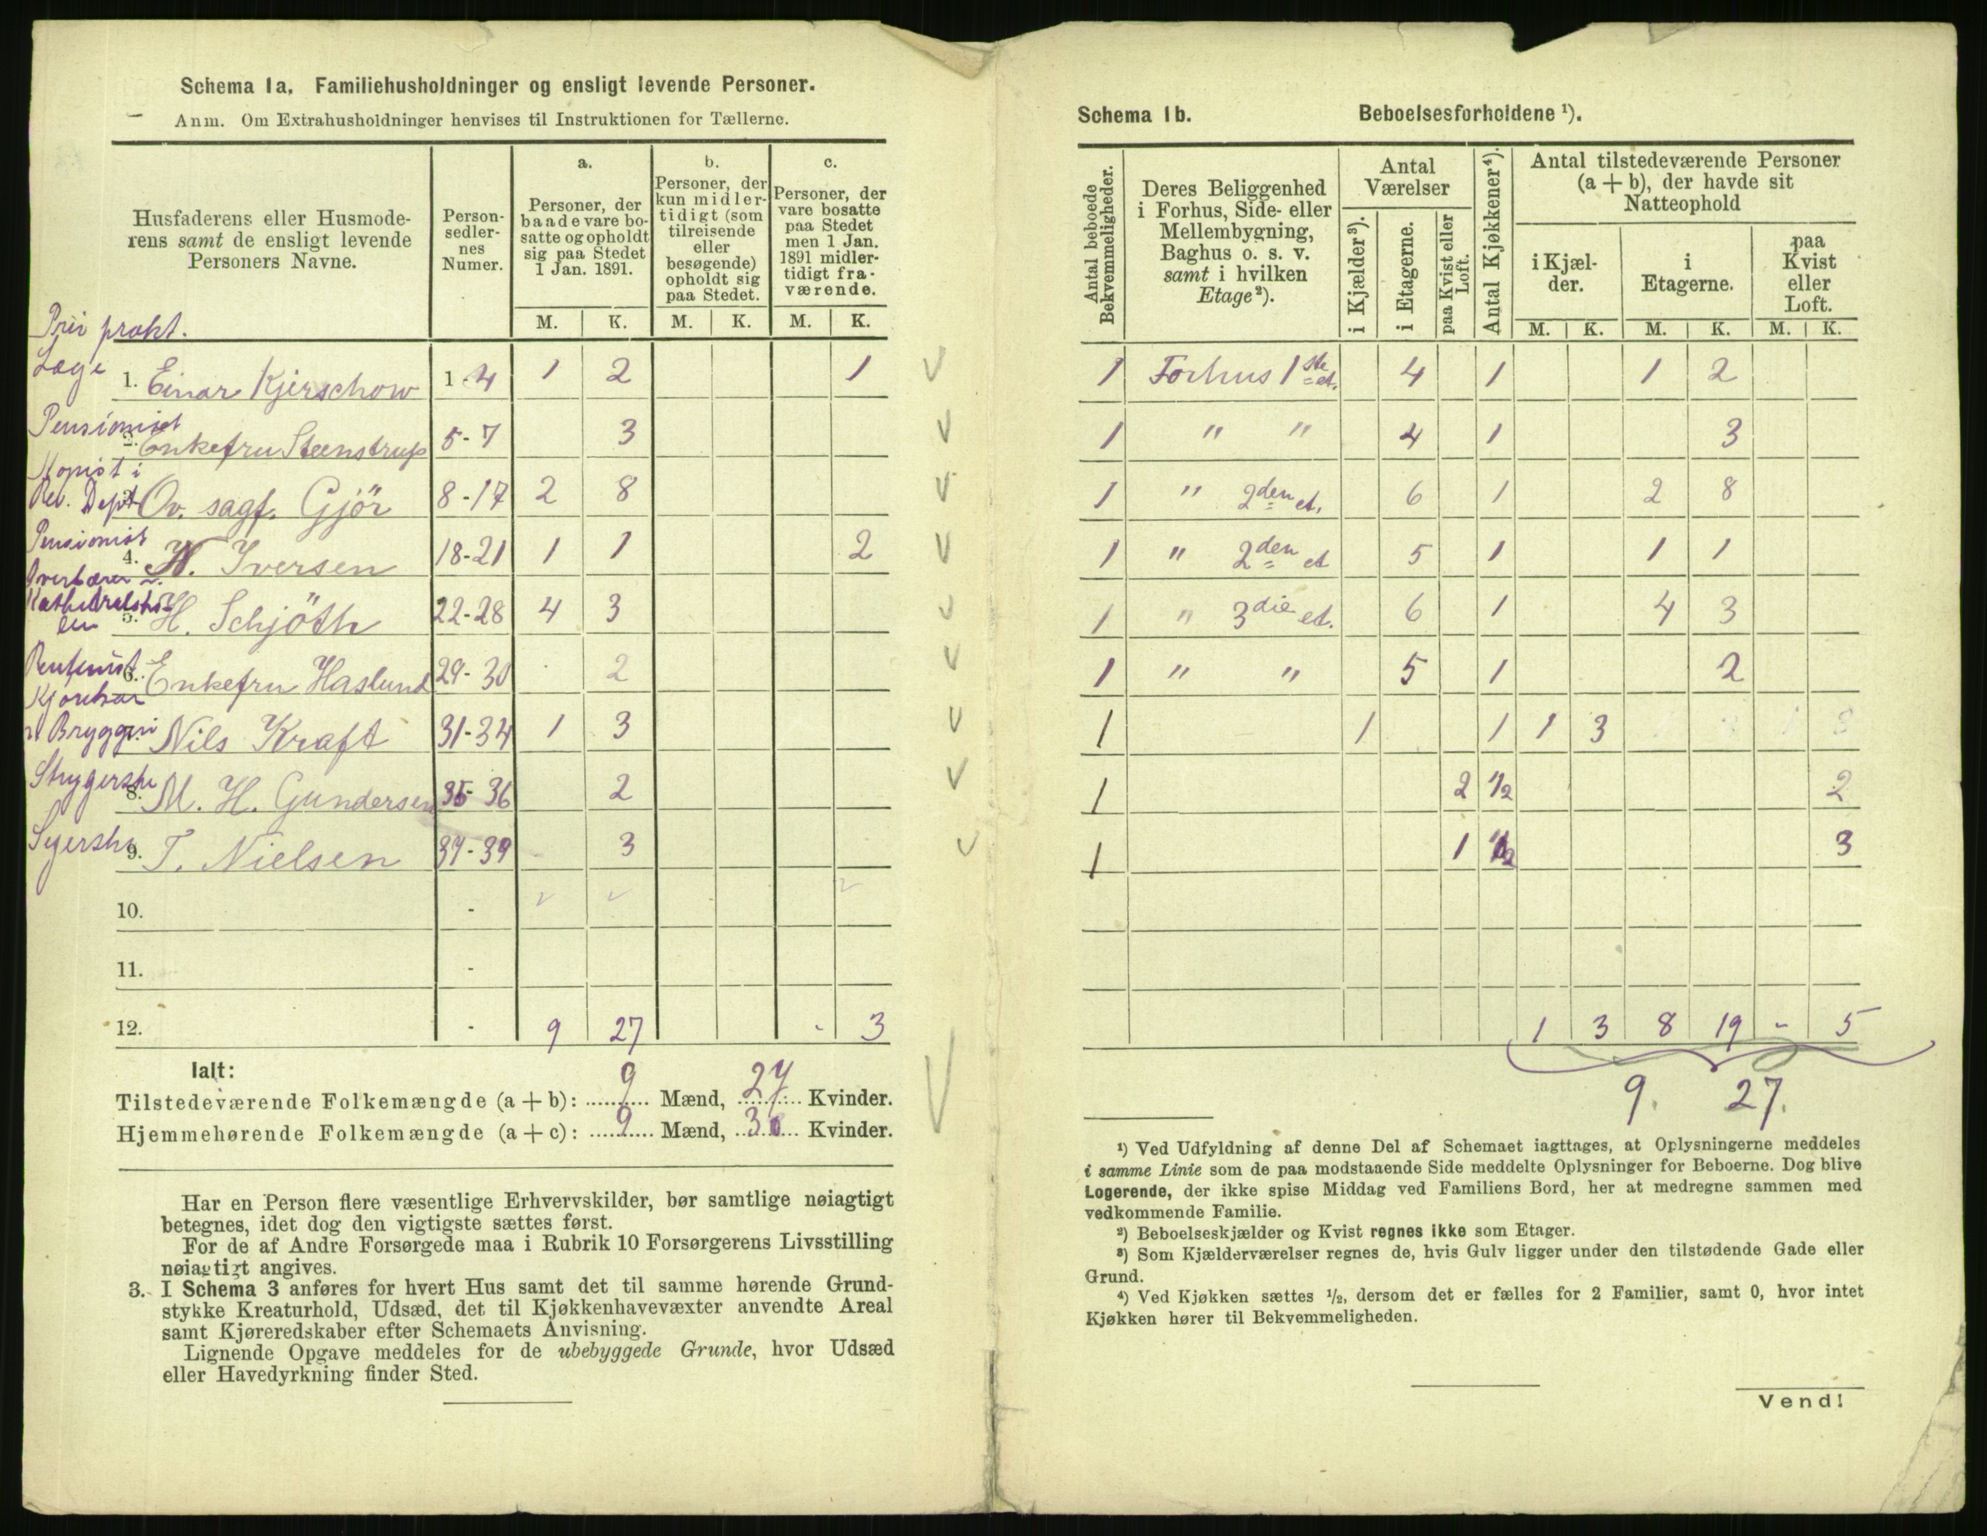 Schema 1a. Familiehusholdninger og ensligt levende Personer.
Anm. Om Extrahusholdninger henvises til Instruktionen for Tællerne.
Husfaderens eller Husmode-
rens samt de ensligt levende
Personers Navne.
Person-
sedler-
nes
Numer.
a.
Personer, der
baade vare bo-
satte og opholdt
sig paa Stedet
1 Jan. 1891.
b.
Personer, der
kun midler-
tidigt (som
tilreisende
eller
besøgende)
opholdt sig
paa Stedet.
c.
Personer, der
vare bosatte
paa Stedet
men 1 Jan.
1891 midler-
tidigt fra-
værende.
M. K. M. K. M. K.
Pri prakt.
Læge
1. Einar Kjerschow 1-4 1 2 1
Pensionist
2. Enkefru Steenstrup 5-7 3
Kopist i
Rev. Dept
3. Ov. sagf. Gjör 8-17 2 8
Pensionist
4. H. Iversen 18-21 1 1 2
Overlærer v.
5. H. Schjöth 22-28 4 3
6. Enkefru Haslund 29-30 2
Bryggeri
Nils Kraft 31-34 1 3
8. M. H. Gundersen 35-36 2
9. T. Nielsen 37-39 3
10. -
11. -
12. - 9 27 - 3
Ialt:
Tilstedeværende Folkemængde (a+b): 9 Mænd, 27 Kvinder.
Hjemmehørende Folkemængde (a+c): 9 Mænd, 30 Kvinder.
Har en Person flere væsentlige Erhvervskilder, bør samtlige nøiagtigt
betegnes, idet dog den vigtigste sættes først.
For de af Andre Forsørgede maa i Rubrik 10 Forsørgerens Livsstilling
nøiagtigt angives.
3. I Schema 3 anføres for hvert Hus samt det til samme hørende Grund-
stykke Kreaturhold, Udsæd, det til Kjøkkenhavevæxter anvendte Areal
samt Kjøreredskaber efter Schemaets Anvisning.
Lignende Opgave meddeles for de ubebyggede Grunde, hvor Udsæd
eller Havedyrkning finder Sted.
Schema 1b. Beboelsesforholdene ¹).
Antal beboede
Bekvemmeligheder.
Deres Beliggenhed
i Forhus, Side- eller
Mellembygning,
Baghus o. s. v.
samt i hvilken
Etage²).
Antal
Værelser
i Kjælder³).
i Etagerne.
paa Kvist eller
Loft.
Antal Kjøkkener⁴).
Antal tilstedeværende Personer
(a+b), der havde sit
Natteophold
i Kjæl-
der.
i
Etagerne.
paa
Kvist
eller
Loft.
M. K. M. K. M. K.
1 Forhus 1ste et. 4 1 1 2
1 " " 4 1 3
1 " 2den et. 6 1 2 8
1 " 2den et 5 1 1 1
1 " 3die et. 6 1 4 3
1 " " 5 1 2
1 1 1 1 3
1 2 1/2 2
1 1 1/2 3
1 3 8 19 - 5
9. 27.
¹) Ved Udfyldning af denne Del af Schemaet iagttages, at Oplysningerne meddeles
i samme Linie som de paa modstaaende Side meddelte Oplysninger for Beboerne. Dog blive
Logerende, der ikke spise Middag ved Familiens Bord, her at medregne sammen med
vedkommende Familie.
²) Beboelseskjælder og Kvist regnes ikke som Etager.
³) Som Kjælderværelser regnes de, hvis Gulv ligger under den tilstødende Gade eller
Grund.
⁴) Ved Kjøkken sættes ½, dersom det er fælles for 2 Familier, samt 0, hvor intet
Kjøkken hører til Bekvemmeligheden.
Vend!